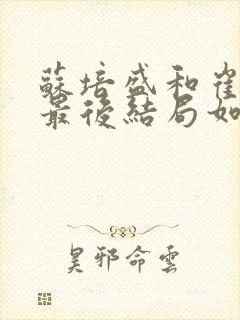 蘇培盛和崔
最後結局如
昊邪命雲